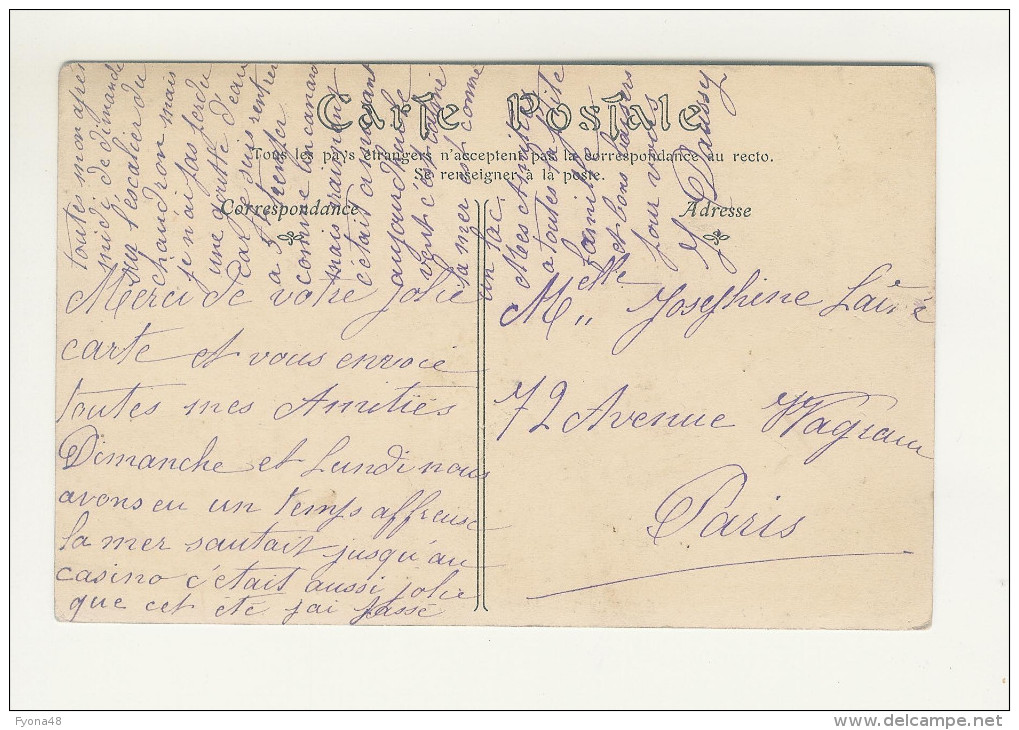 Carte Postale
Tous les pays étrangers n'acceptent pas la correspondance au recto.
Se renseigner à la poste.
Correspondance
Adresse
Merci de votre jolie
carte et vous envoie
toutes mes Amitiés
Dimanche et Lundi nous
avons eu un temps affreuse
la mer sautait jusqu'au
casino c'était aussi jolie
que cet été j'ai passé
toutes mon après
midi de dimanche
sur l'escalier du
chaudron mais
je n'ai pas perdu
une goutte d'eau
car je suis rentrer
a tremper
comme un canard
mais vraiment
c'était amusant
aujourd'hui le
vent c'est calmé
la mer est comme
un lac.
Mes Amitiés
a toutes la
famille
et bons baisers
pour vous
J Daussy
Melle Josephine Lainé
72 Avenue Wagram
Paris
Fyona48
www.delcampe.net